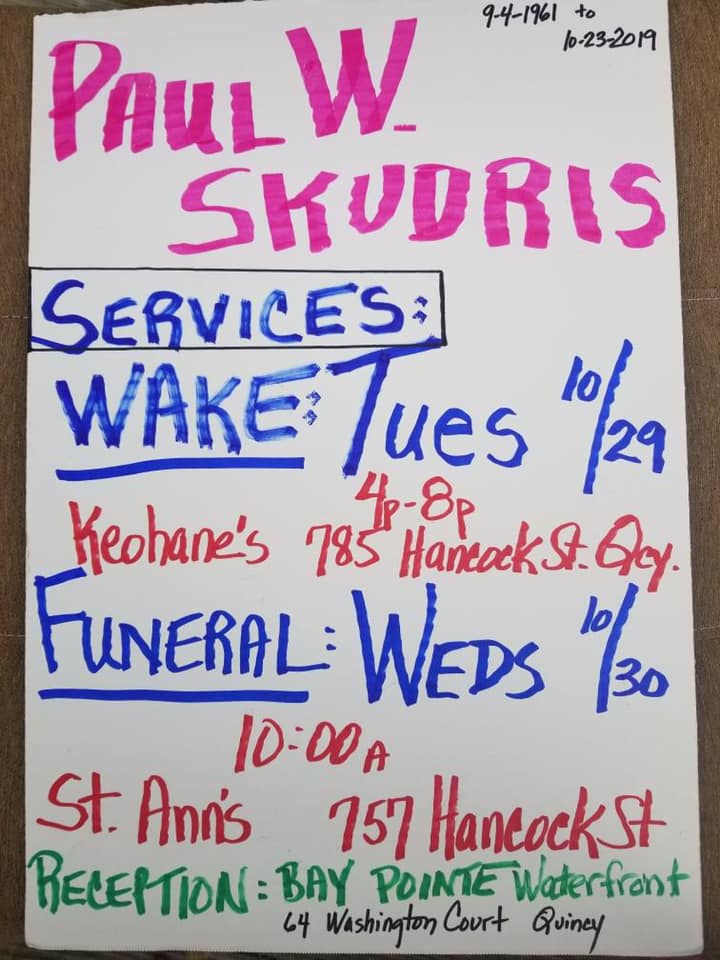 9-4-1961 to
10-23-2019
PAUL W.
SKUDRIS
SERVICES:
WAKE: Tues 10/29
4p-8p
Keohane's 785 Hancock St. Qcy.
FUNERAL: WEDS 10/30
10:00A
St. Ann's 757 Hancock St
RECEPTION: BAY POINTE Waterfront
64 Washington Court Quincy